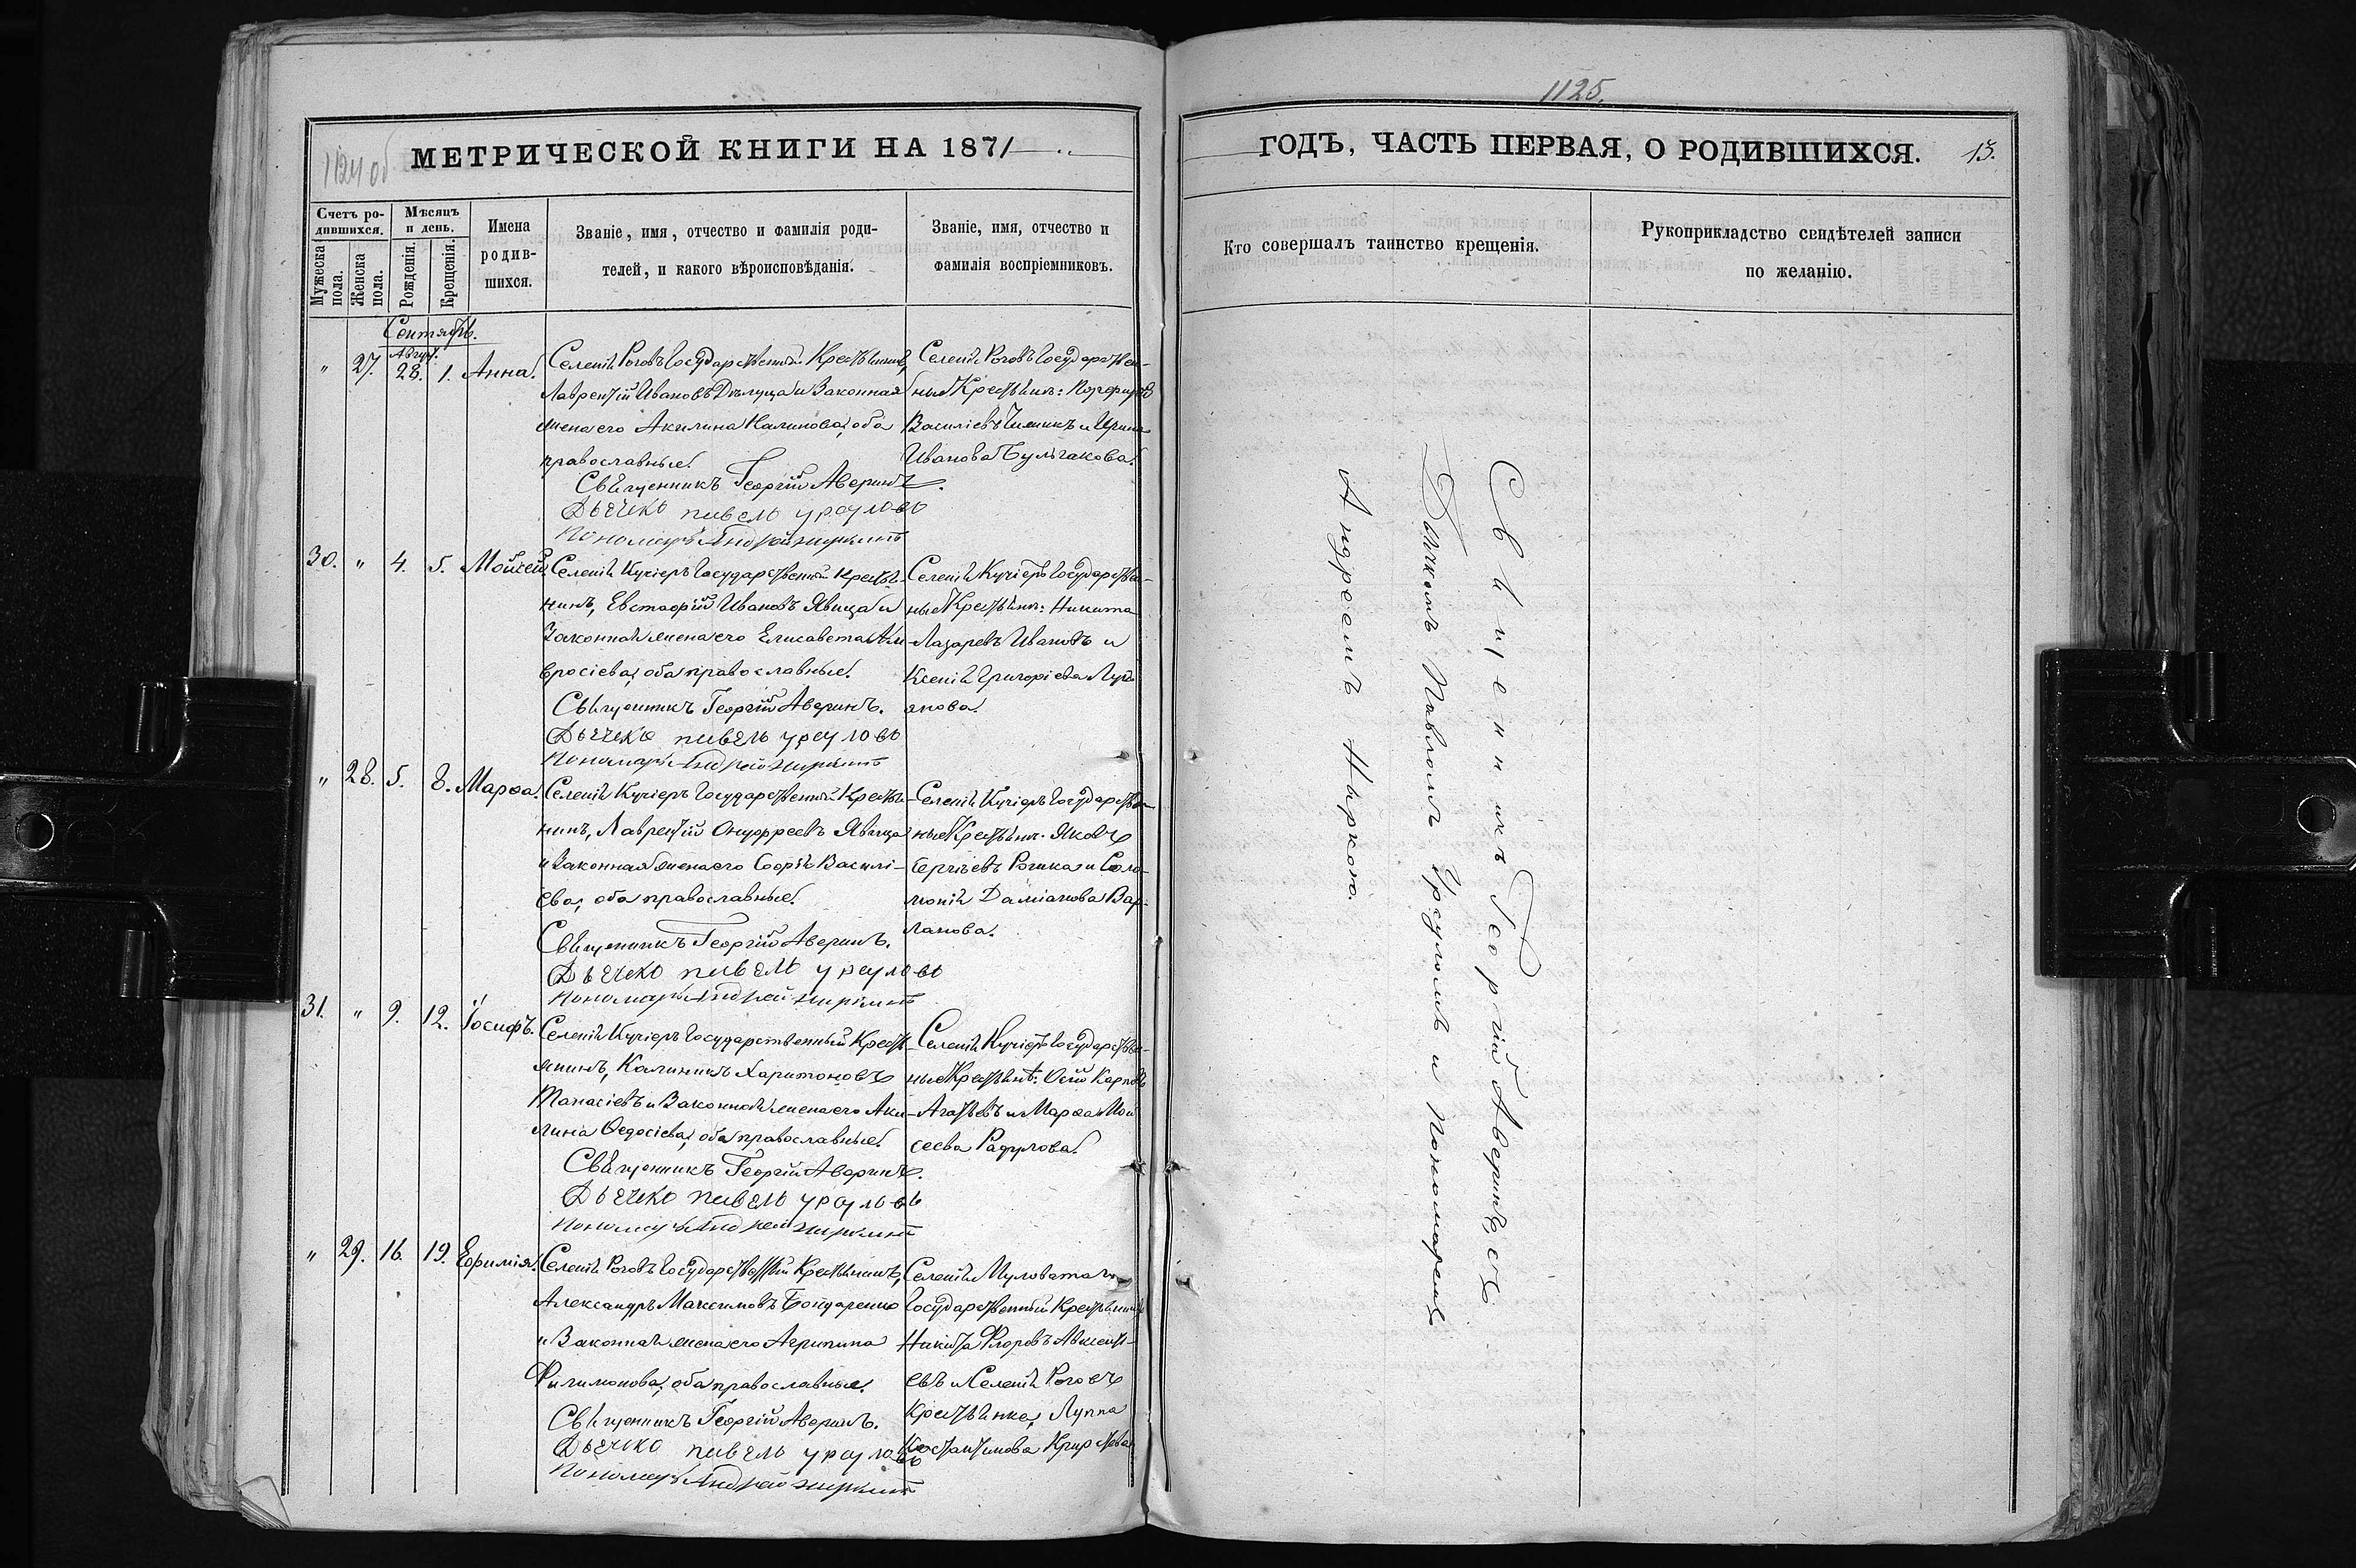 1124 об
МЕТРИЧЕСКОЙ КНИГИ НА 1871
Счетъ ро-
дившихся.
Мужеска пола.
Женска пола.
Мѣсяцъ
и день.
Рожденія.
Крещенія.
Имена
родив-
шихся.
Званіе, имя, отчество и фамилія роди-
телей, и какого вѣроисповѣданія.
Званіе, имя, отчество и
фамилія воспріемниковъ.
Сентябрь.
" 27. Авгус. 28. 1. Анна.
Селенія Роговъ Государственный Крестьянинъ,
Лаврентій Ивановъ и Законная
жена его Акилина Калинова, оба
православные.
Священникъ Георгій Аверинъ.
Дьячекъ Павелъ Урсуловъ
Пономарь Андрей Ныркинъ
Селенія Роговъ Государствен-
ные Крестьяне: Порфирій
Василіевъ Чимикъ и Ирина
Иванова Булгакова.
30. " 4. 5. Мойсей.
Селенія Кучіеръ Государственный Крестья-
нинъ, Евстафій Ивановъ Явица и
Законная жена его Елисавета Ам-
вросіева, оба православные.
Священникъ Георгій Аверинъ.
Дьячекъ Павелъ Урсуловъ
Пономарь Андрей Ныркинъ
Селенія Кучіеръ Государствен-
ные Крестьяне: Никита
Лазаревъ Ивановъ и
Ксенія Григоріева Лукі-
янова.
" 28. 5. 8. Марѳа.
Селенія Кучіеръ Государственный Крестья-
нинъ, Лаврентій Онуфреевъ Явица
и Законная жена его Софія Василі-
ева, оба православные.
Священникъ Георгій Аверинъ.
Дьячекъ Павелъ Урсуловъ
Пономарь Андрей Ныркинъ
Селенія Кучіеръ Государствен-
ные Крестьяне: Яковъ
Сергіевъ и Соло-
монія Даміанова Вар-
ланова.
31. " 9. 12. Іосифъ.
Селенія Кучіеръ Государственный Кресть-
янинъ, Калиникъ Харитоновъ
Танасіевъ и Законная жена его Аки-
лина Ѳедосіева, оба православные.
Священникъ Георгій Аверинъ.
Дьячекъ Павелъ Урсуловъ
Пономарь Андрей Ныркинъ
Селенія Кучіеръ Государствен-
ные Крестьяне: Осій Карповъ
Агатьевъ и Марѳа Мои
сеева Радулова.
" 29. 16. 19. Ефимія.
Селенія Роговъ Государственный Крестьянинъ,
Александръ Максимовъ Бондаренко
и Законная жена его Агрипина
Филимонова, оба православные.
Священникъ Георгій Аверинъ.
Дьячекъ Павелъ Урсуловъ
Пономарь Андрей Ныркинъ
Селенія Муловатаго
Государственный Крестьянинъ
Никита Флоровъ Авксенті-
евъ и Селенія Роговъ
крестьянка, Луппа
Костантинова
1125.
ГОДЪ, ЧАСТЬ ПЕРВАЯ, О РОДИВШИХСЯ. 13.
Кто совершалъ таинство крещенія.
Рукоприкладство свидѣтелей записи
по желанію.
Священникъ Георгій Аверинъ, съ
Дьячкомъ Павломъ Урсуломъ и пономаремъ
Андреемъ Ныркою.